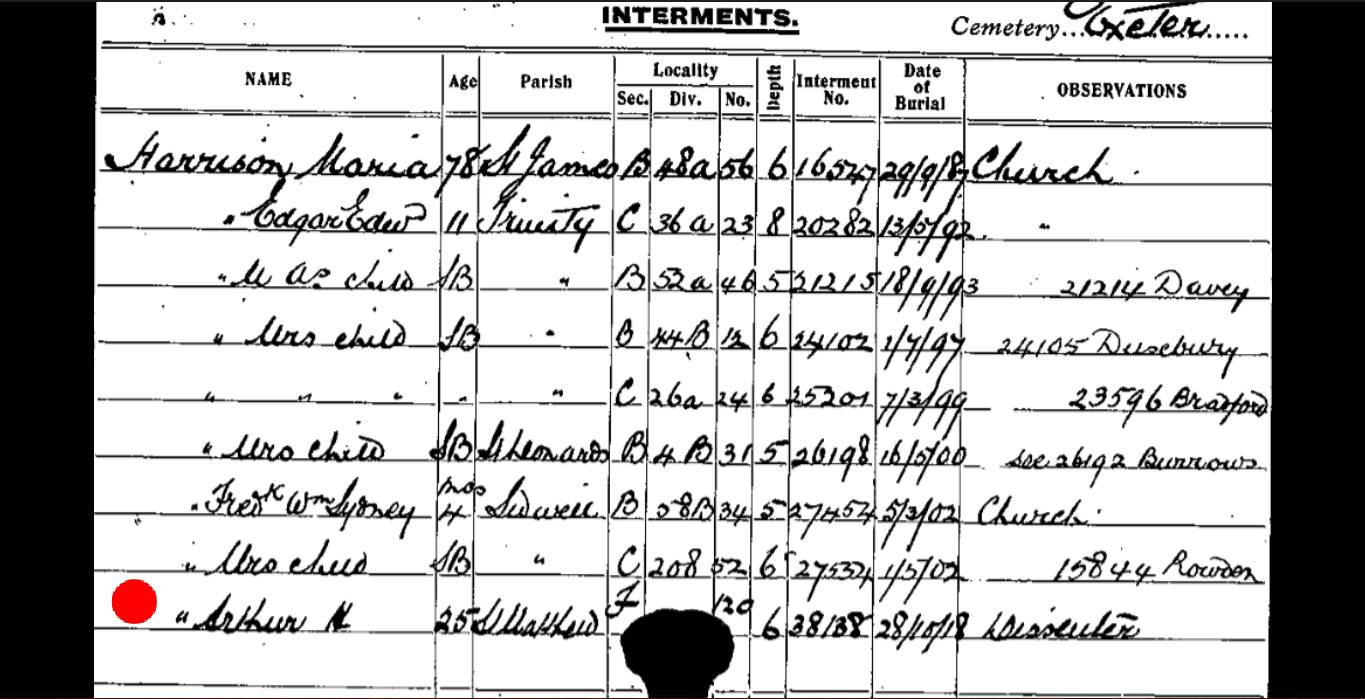 INTERMENTS. Cemetery...Exeter.....
NAME Age Parish Locality Depth Interment No. Date of Burial OBSERVATIONS
Sec. Div. No.
Harrison Maria 78 St James B 48a 56 6 16547 29/9/87 Church
" Edgar Edwd 11 Trinity C 36a 23 8 20282 13/5/92 "
" child SB " B 52a 46 5 21215 18/9/93 21214 Davey
" Mrs child SB " B 44B 12 6 24102 1/7/97 24105 Dusebury
" " " " " C 26a 24 6 25201 7/3/99 23596 Bradford
" Mrs child SB St Leonards B 4B 31 5 26198 16/5/00 see 26192 Burrows
" Fredk Wm Sydney mos 4 Sidwell B 58B 34 5 27454 5/3/02 Church
" Mrs child SB " C 208 52 6 27532 1/5/02 15844 Rowden
" Arthur H 25 St Matthew F 120 6 38138 28/10/18 Dissenter